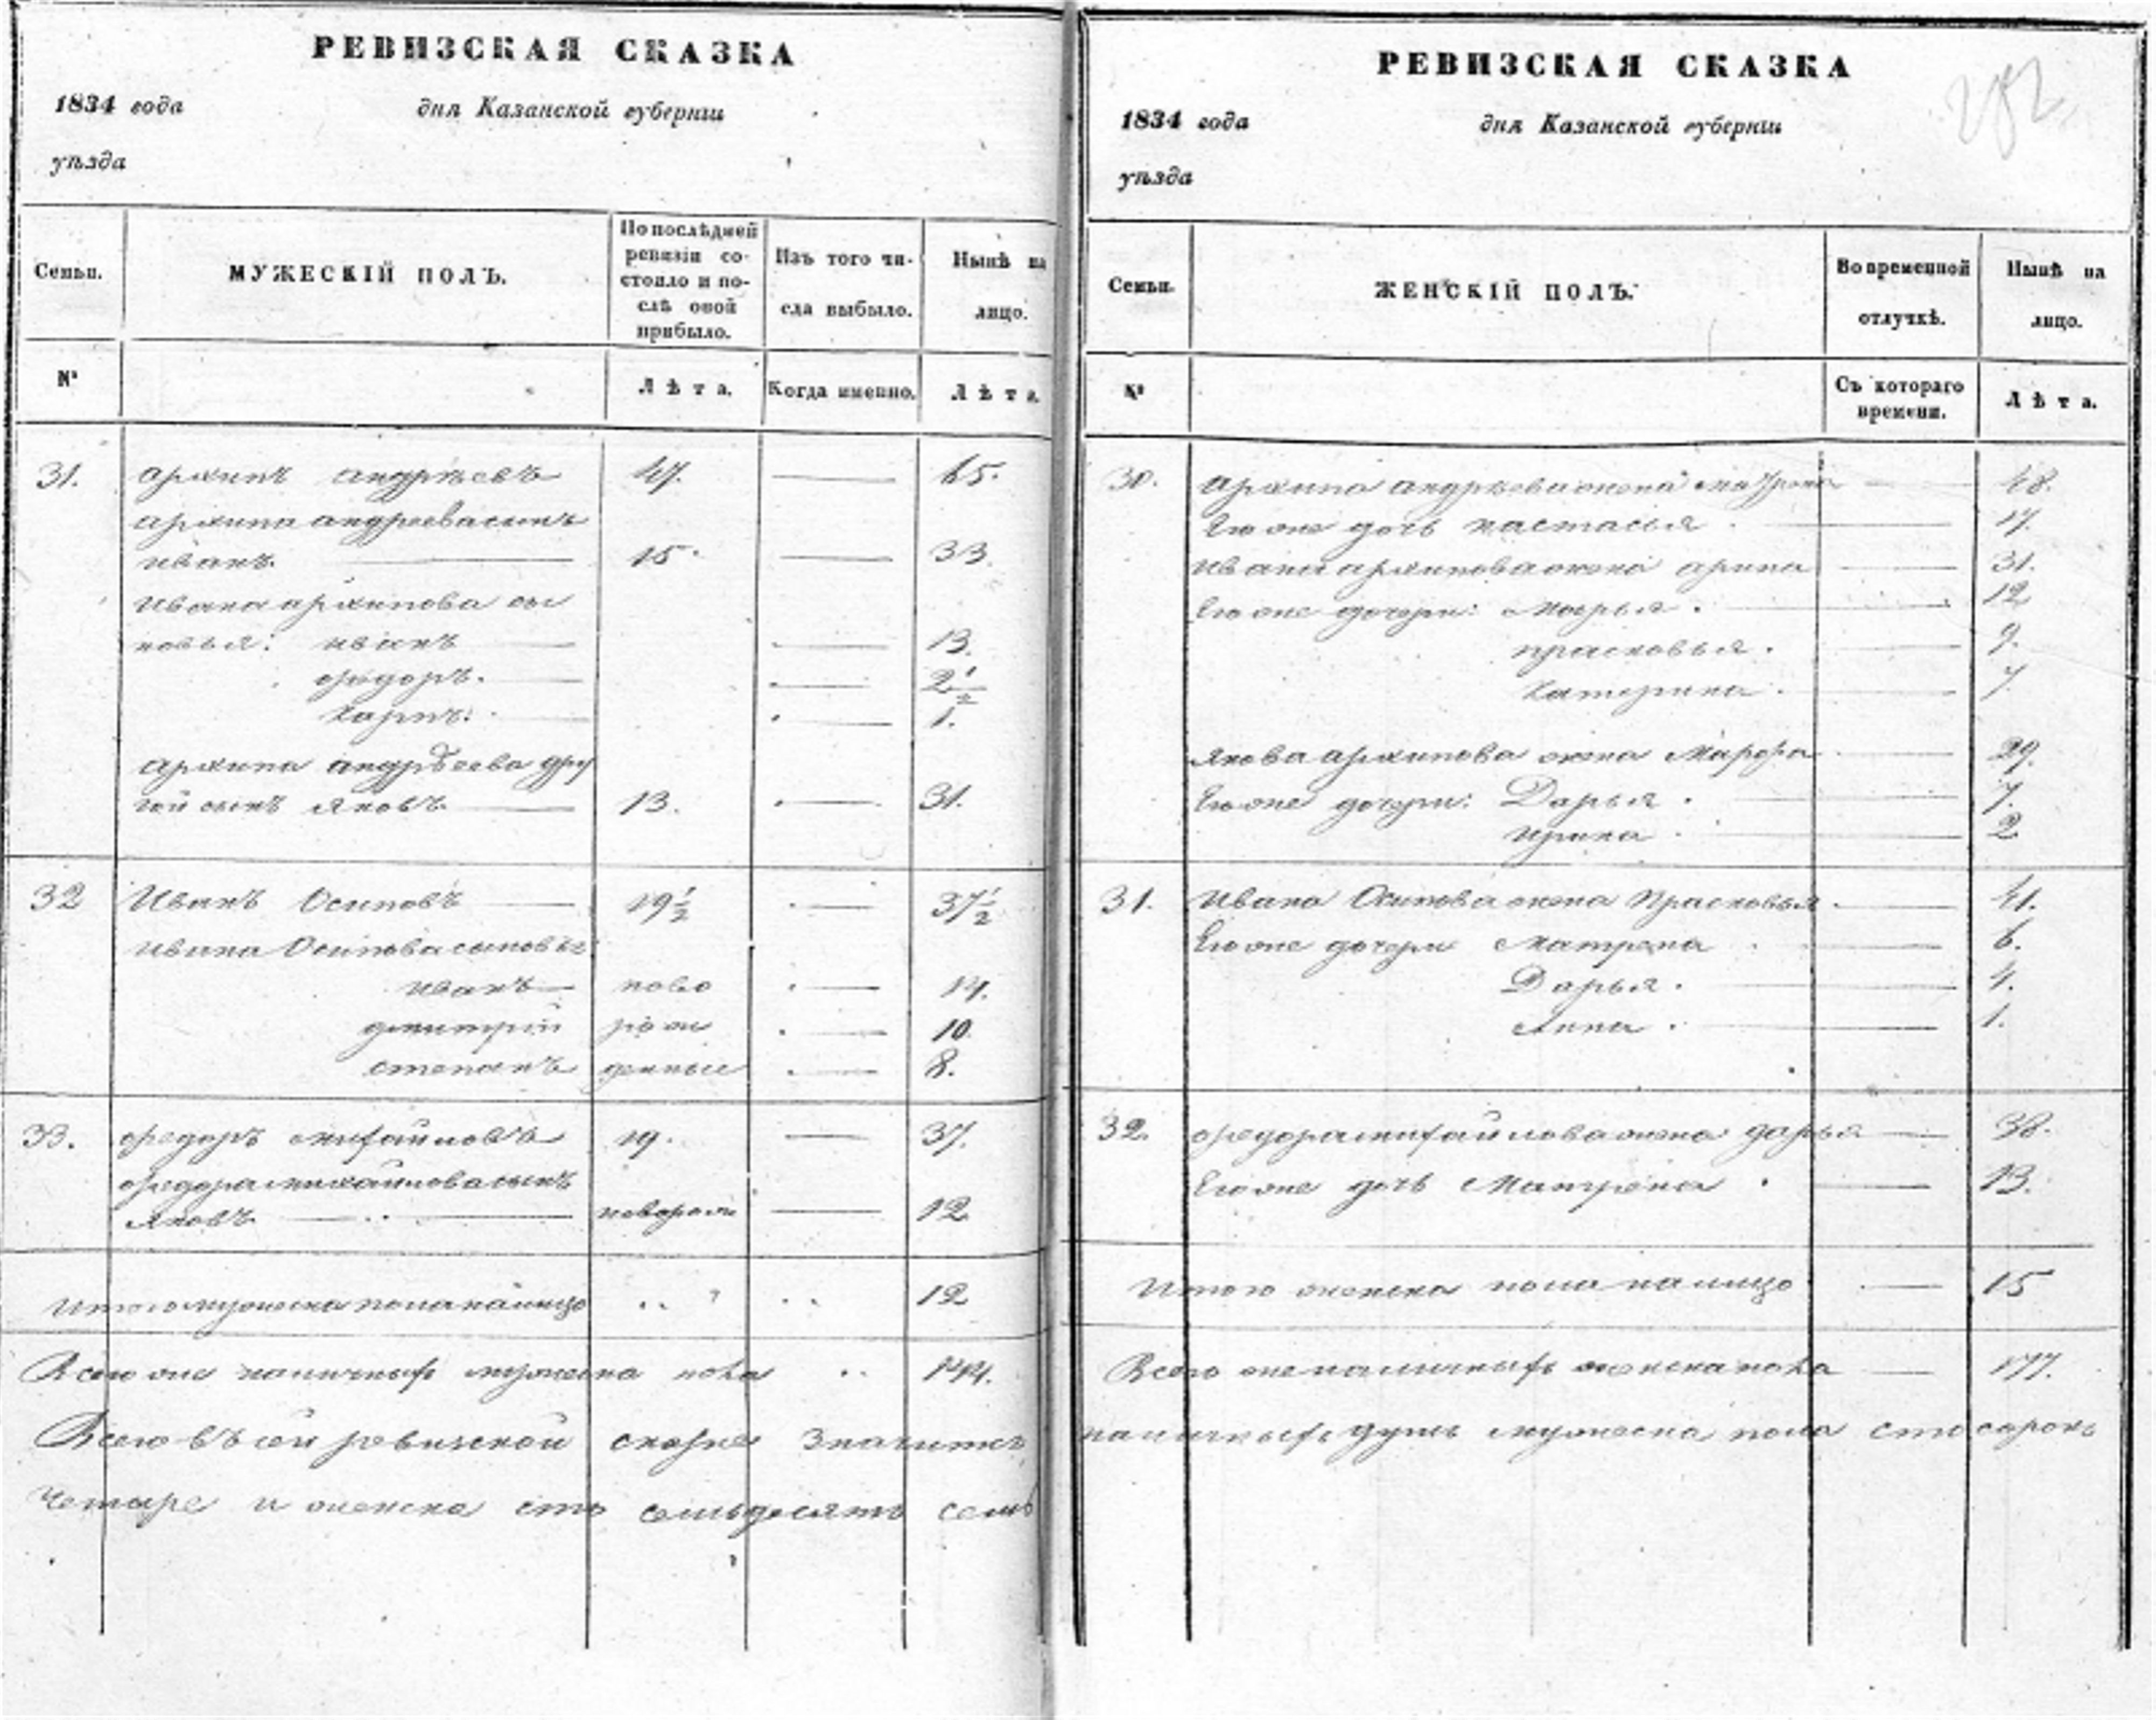 РЕВИЗСКАЯ СКАЗКА
1834 года дня Казанской губернии
уѣзда
Семьи. МУЖЕСКІЙ ПОЛЪ. По послѣдней ревизіи состояло и послѣ оной прибыло. Изъ того числа выбыло. Нынѣ на лицо.
№ Лѣта. Когда именно. Лѣта.
31. Архипъ Андрѣевъ 47. 65.
Архипа Андреева сынъ
Иванъ. 15. 33.
Ивана Архипова сы
новья: Иванъ 13.
Федоръ. 2 1/2
Карпъ. 1.
Архипа Андрѣева дру
гой сынъ Яковъ 13. 31.
32 Иванъ Осиповъ 19 1/2 37 1/2
Ивана Осипова сыновья
Иванъ ново 14.
Дмитрій рож 10.
Степанъ денные 8.
33. Федоръ Михайловъ 19. 37.
Федора Михайлова сынъ
Яковъ новорож 12
Итого мужеска пола на лицо 12
Всего же наличныхъ мужеска пола 144.
Всего въ сей ревизской сказке значитъ
четыре и женска сто семьдесятъ семь
РЕВИЗСКАЯ СКАЗКА
282
1834 года дня Казанской губернии
уѣзда
Семьи. ЖЕНСКІЙ ПОЛЪ. Во временной отлучкѣ. Нынѣ на лицо.
№ Съ котораго времени. Лѣта.
30. Архипа Андрѣева жена Матрена 48.
Его же дочь Настасья 17.
Ивана Архипова жена Арина 31.
Его же дочери: Марья. 12
Прасковья. 9.
Катерина. 7.
Якова Архипова жена Марфа 29.
Его же дочери: Дарья. 7.
Ирина 2
31. Ивана Осипова жена Прасковья 41.
Его же дочери Матрена 6.
Дарья. 4.
Анна. 1.
32. Федора Михайлова жена Дарья 38.
Его же дочь Матрена 13.
Итого женска пола на лицо 15
Всего же наличныхъ женска пола 177.
наличныхъ душъ мужеска пола сто сорокъ